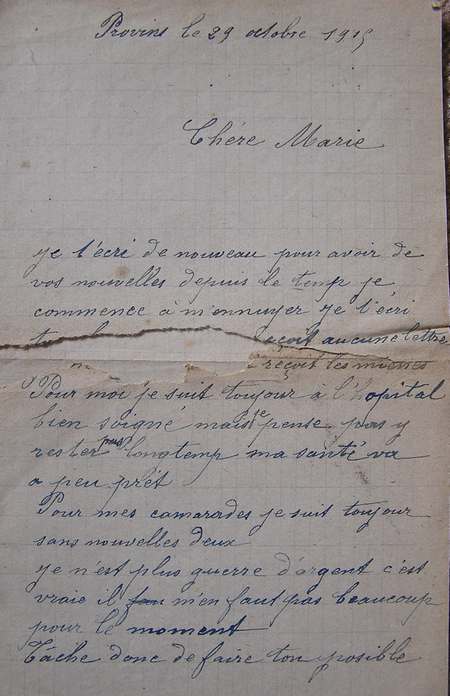 Provins le 29 octobre 1915
Chére Marie
je t'écri de nouveau pour avoir de
vos nouvelles depuis le temp je
commence à m'ennuyer je t'écri
reçoit aucune lettre
reçoit les miennes
Pour moi je suit toujour à l'hopital
bien soigné mais je pense pas y
rester pas longtemp ma santé va
a peu prêt
Pour mes camarades je suit toujour
sans nouvelles deux
je n'est plus guerre d'argent c'est
vraie il m'en faut pas beaucoup
pour le moment
Tâche donc de faire ton posible